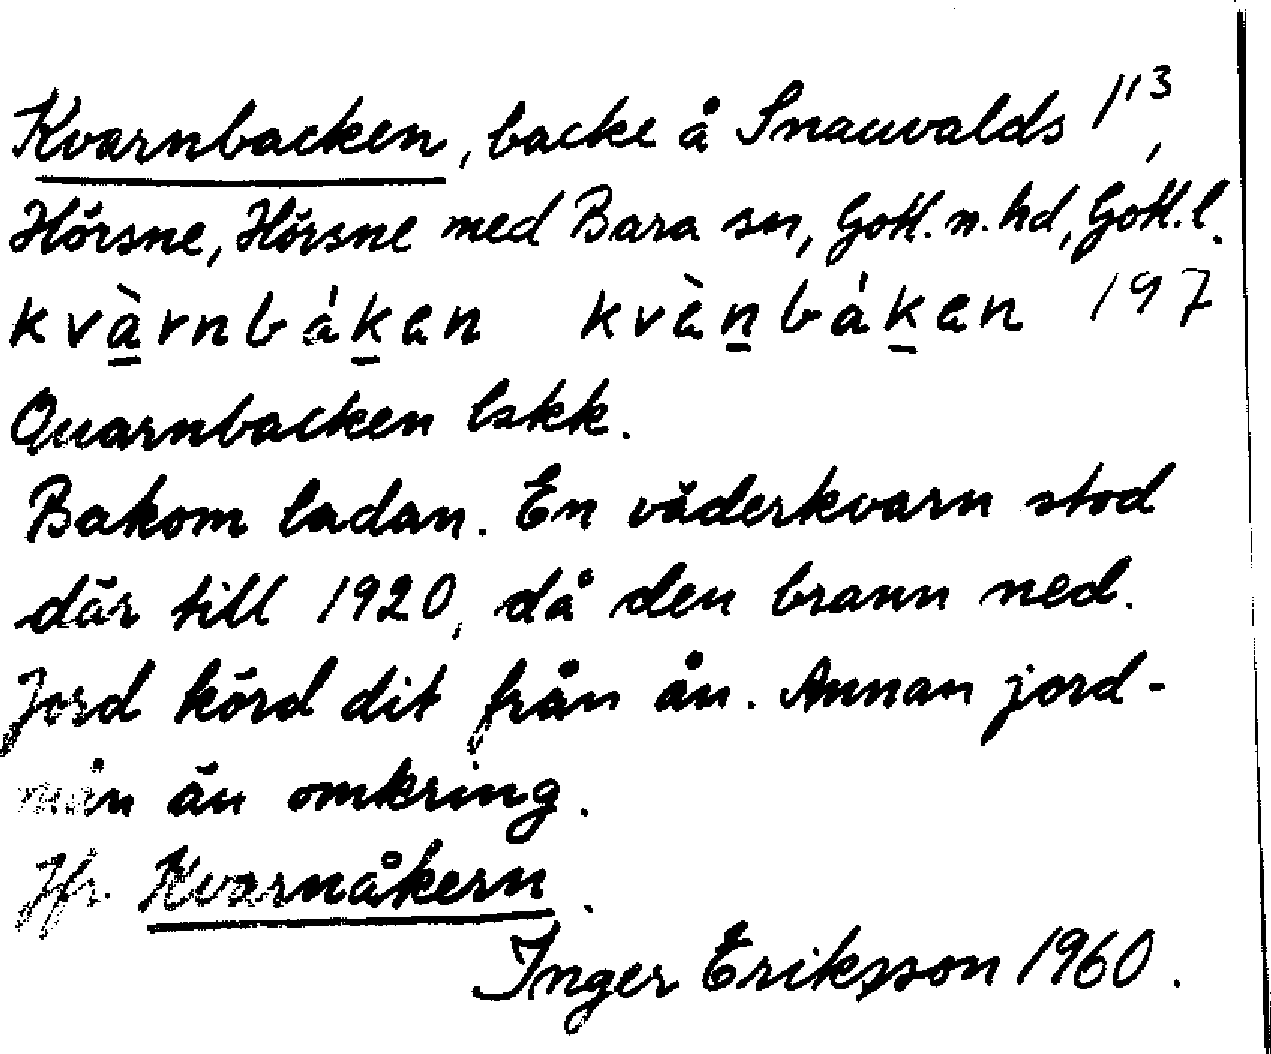 Kvarnbacken, backe å Snauvalds 1¹³,
Hörsne, Hörsne med Bara sn, Gotl. n. hd, Gotl. l.
kvàrnbáken kvènbáken 197
Quarnbacken lskk.
Bakom ladan. En väderkvarn stod
där till 1920, då den brann ned.
Jord körd dit från ån. Annan jord-
mån än omkring.
Jfr. Kvarnåkern.
Inger Eriksson 1960.